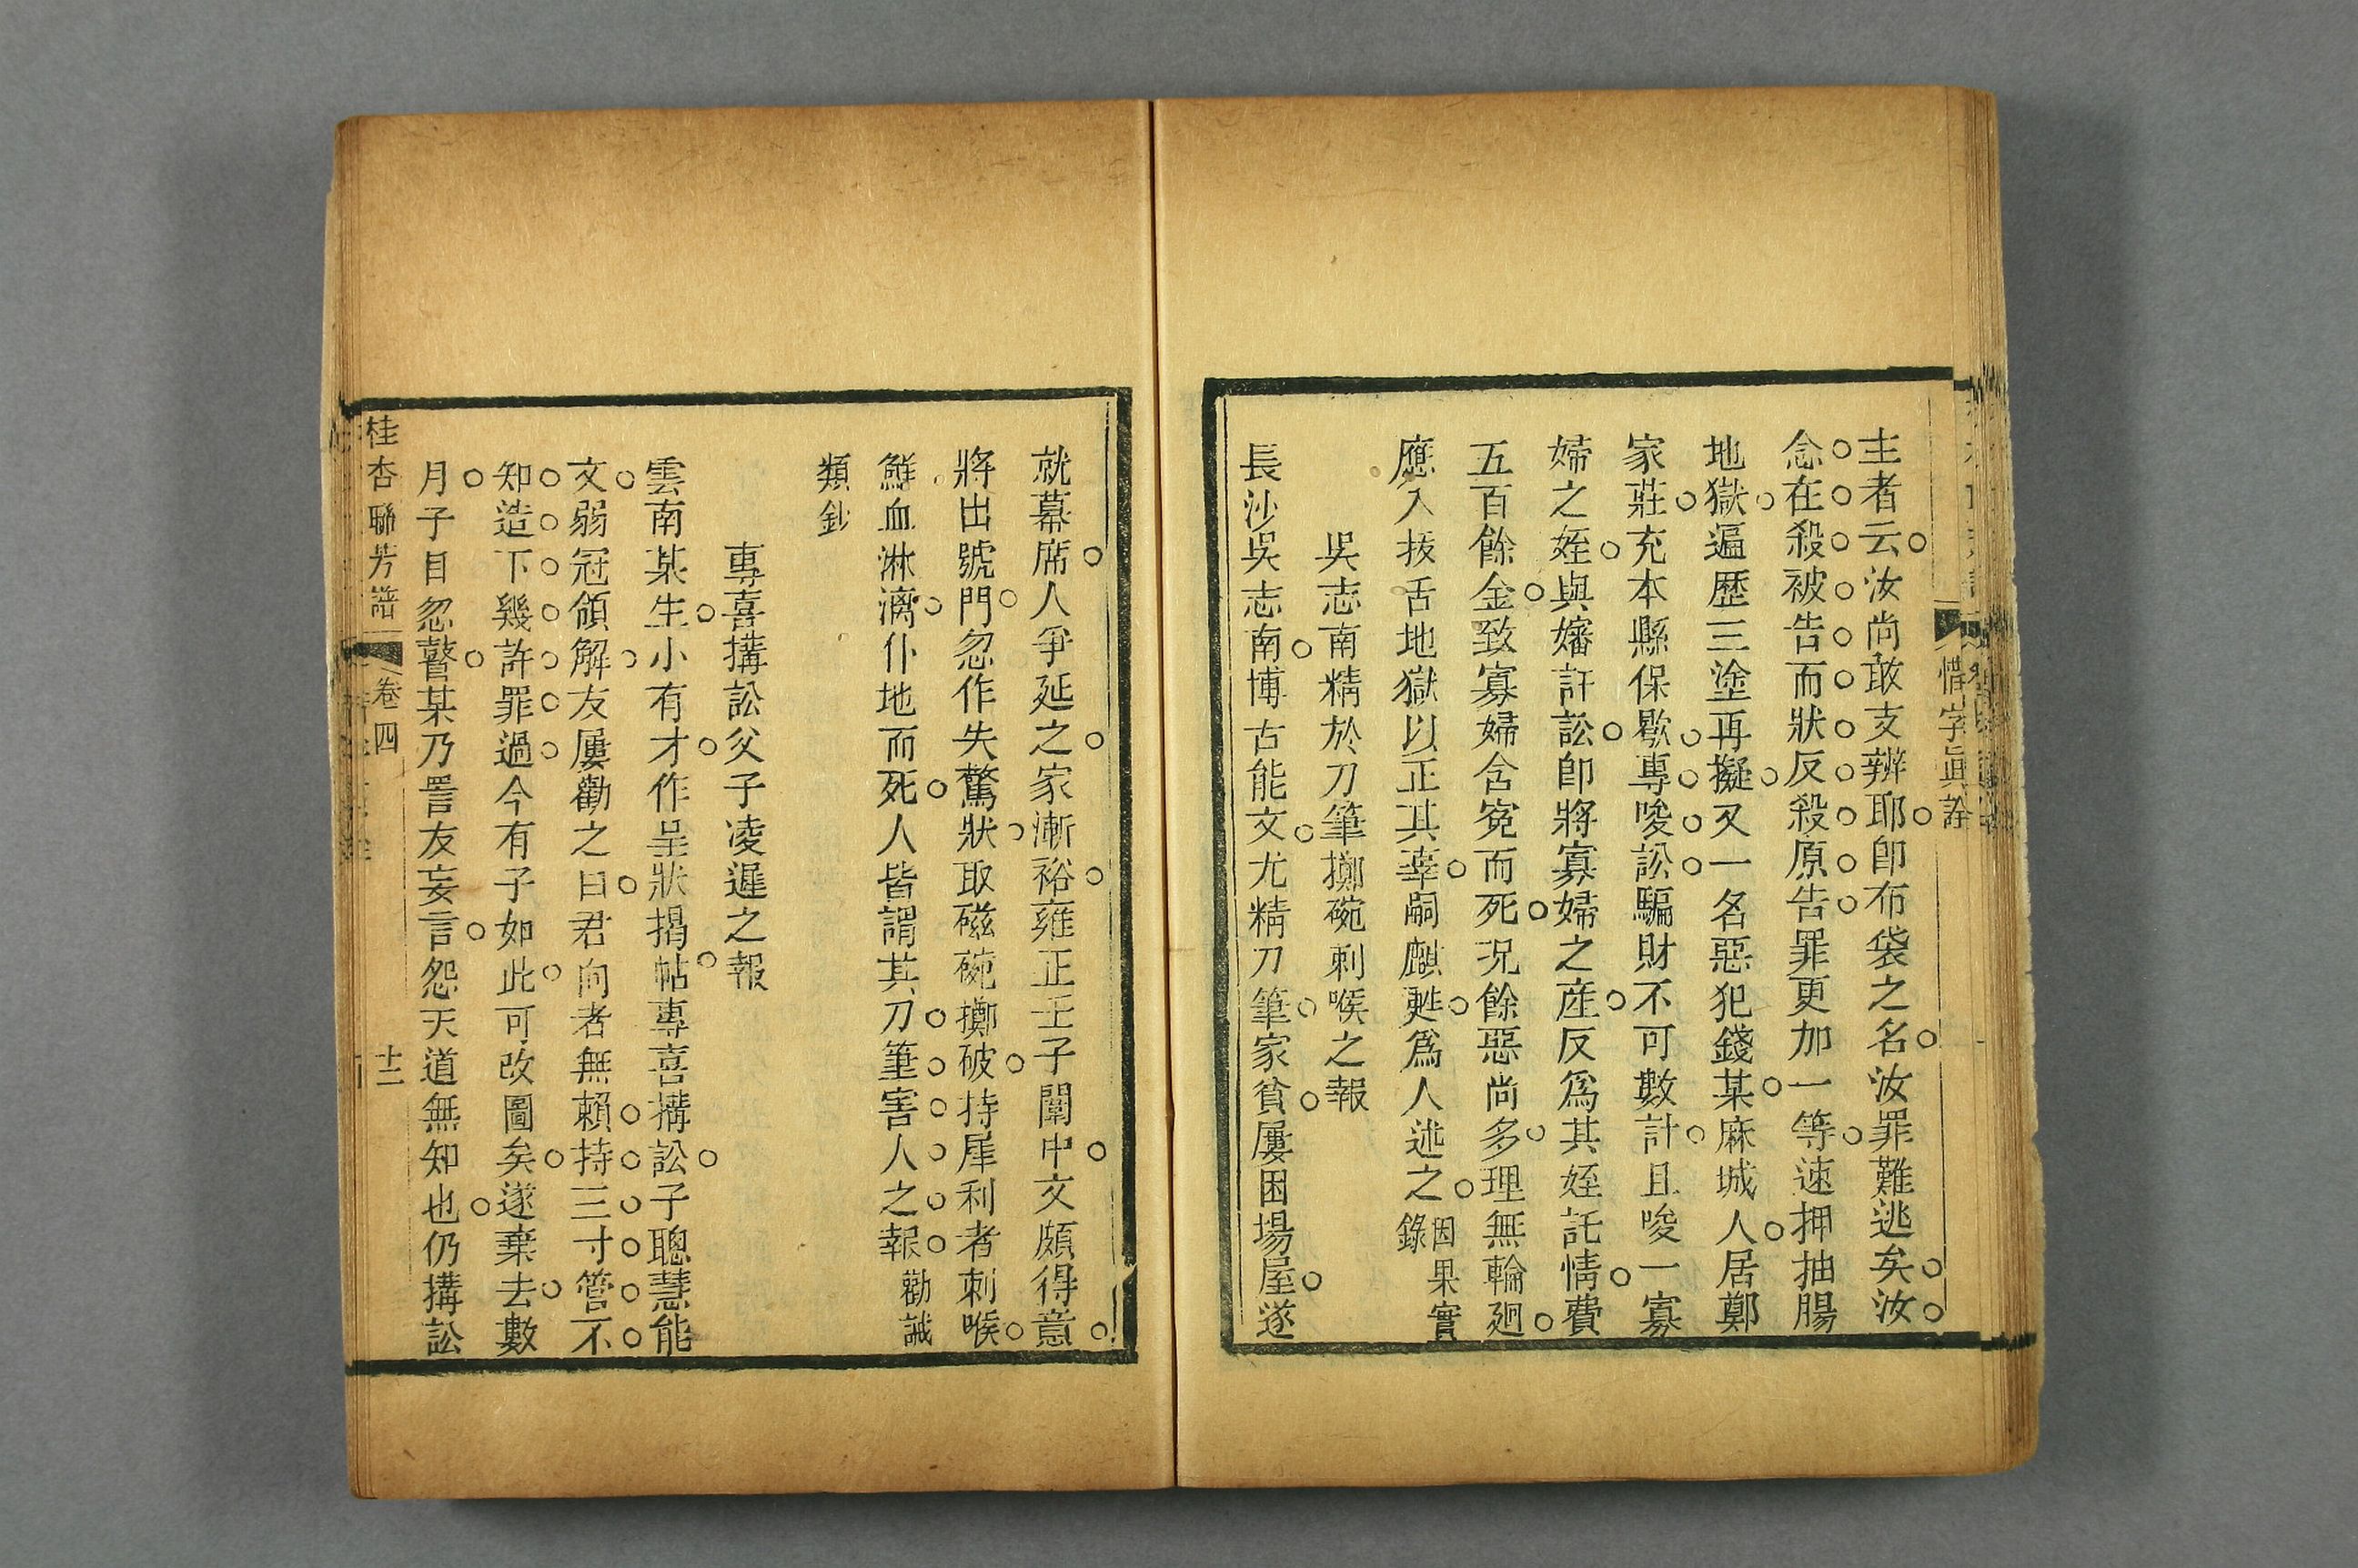 惜字眞詮
主者云汝尚敢支辨耶卽布袋之名汝罪難逃矣汝
念在殺被告而狀反殺原告罪更加一等速押抽腸
地獄遍歷三塗再擬又一名惡犯錢某麻城人居鄭
家莊充本縣保歇專唆訟騙財不可數計且唆一寡
婦之姪與嬸訐訟卽將寡婦之産反爲其姪託情費
五百餘金致寡婦含寃而死况餘惡尚多理無輪廻
應入拔舌地獄以正其辜嗣麒甦爲人述之因果實
錄
吳志南精於刀筆擲碗刺喉之報
長沙吳志南博古能文尤精刀筆家貧屢困場屋遂
就幕席人爭延之家漸裕雍正壬子闈中文頗得意
將出號門忽作失驚狀取磁碗擲破持犀利者刺喉
鮮血淋漓仆地而死人皆謂其刀筆害人之報勸誡
類鈔
專喜搆訟父子凌遲之報
雲南某生小有才作呈狀揭帖專喜搆訟子聰慧能
文弱冠領解友屢勸之曰君向者無賴持三寸管不
知造下幾許罪過今有子如此可改圖矣遂棄去數
月子目忽瞽某乃詈友妄言怨天道無知也仍搆訟
桂杏聯芳譜
卷四
十二